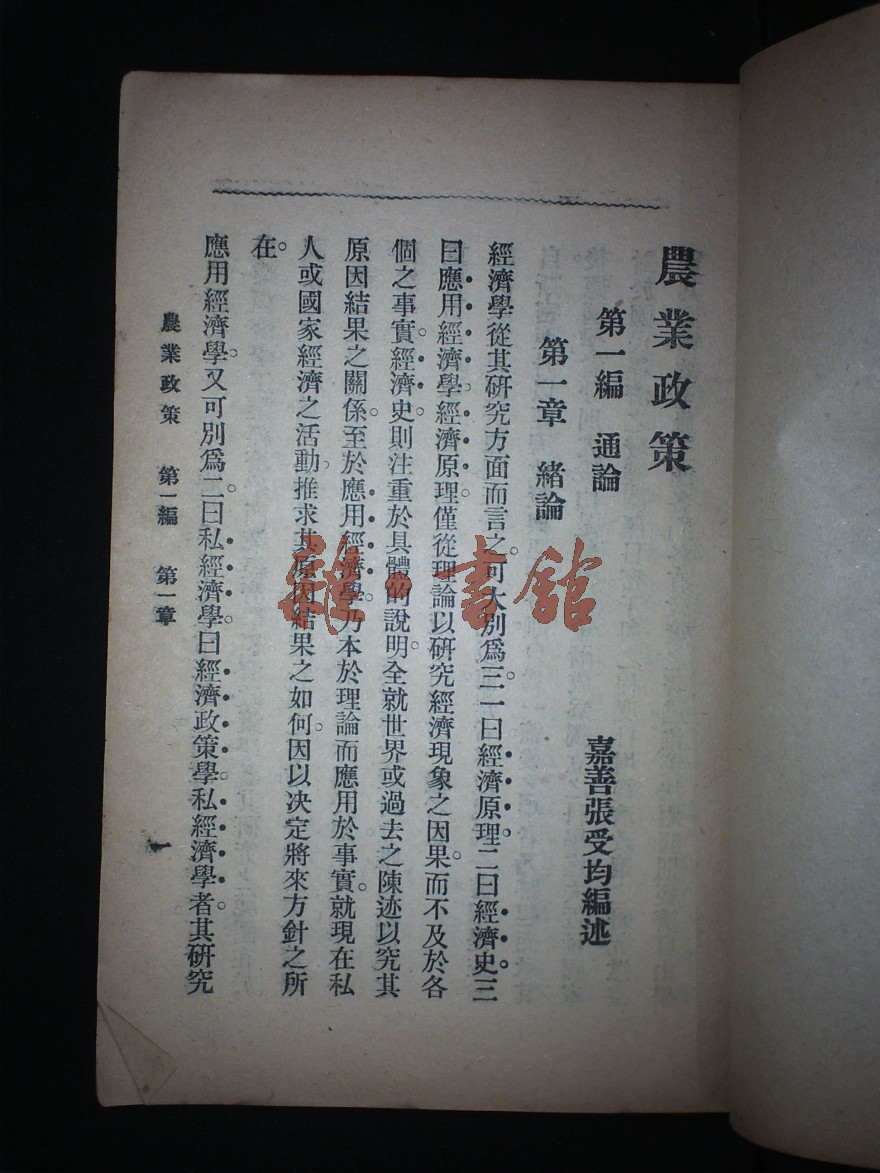 農業政策
第一編 通論
嘉善張受均編述
第一章 緒論
經濟學從其研究方面而言之。可大別爲三一曰經濟原理。二曰經濟史。三
曰應用經濟學經濟原理。僅從理論以研究經濟現象之因果。而不及於各
個之事實。經濟史則注重於具體的說明。全就世界或過去之陳迹以究其
原因結果之關係。至於應用經濟學。乃本於理論而應用於事實。就現在私
人或國家經濟之活動。推求其原因結果之如何。因以决定將來方針之所
在。
應用經濟學。又可別爲二。曰私經濟學。曰經濟政策學。私經濟學者。其研究
農業政策 第一編 第一章
一
雜書館